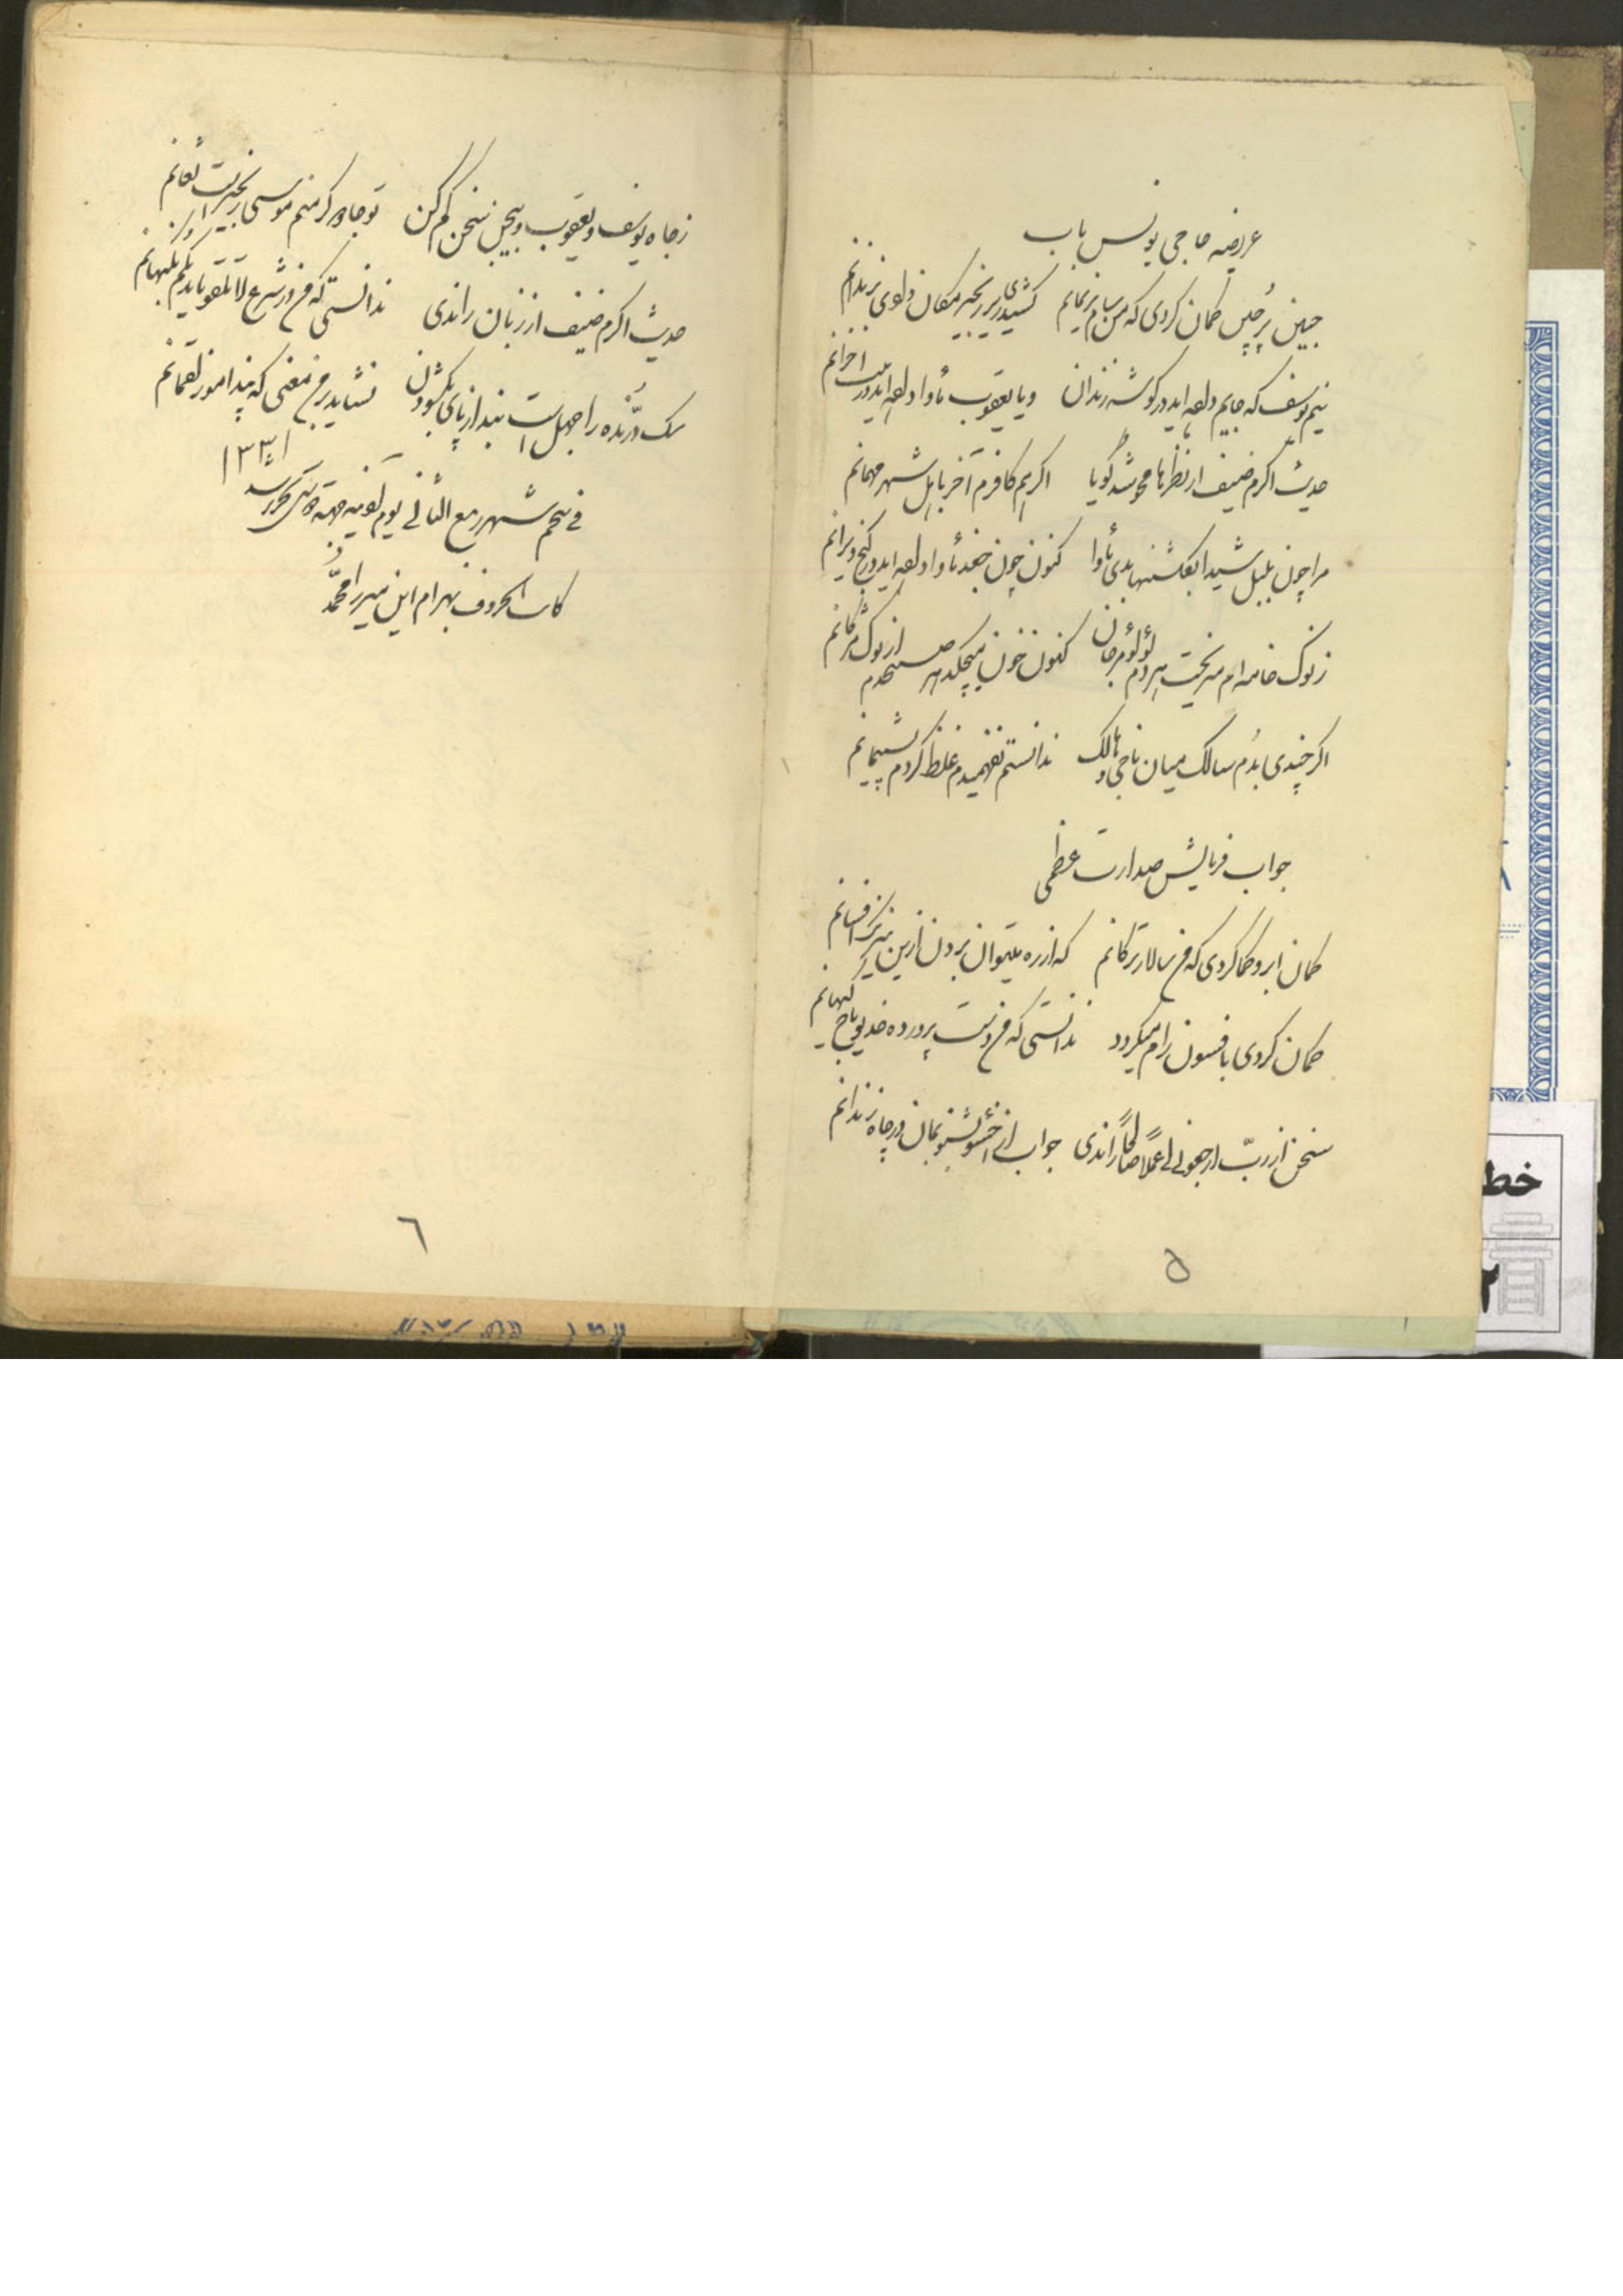 عریضه حاجی یونس باب
جبین پُر چین گمان کردی که من سام نریمانم کشیدی زیر زنجیر مکان دادی بزندانم
نیم یوسف که جایم داده‌اید در گوشه زندان و یا یعقوب مأوا داده‌اید در بیت احزانم
حدیث اکرم ضیف از نظرها محو شد گویا اگر هم کافرم آخر باین شهر مهمانم
مرا چون بلبل شیدا بگلشنها بدی مأوا کنون چون جغد مأوا داده‌اید در کنج ویرانم
ز نوک خامه‌ام میریخت هر دم لؤلؤ و مرجان کنون خون میچکد هر صبحدم از نوک مژگانم
اگر چندی بدُم سالک میان ناجی و هالک ندانستم نفهمیدم غلط کردم پشیمانم
جواب فرمایش صدارت عظمی
کمان ابرو گمان کردی که من سالار ترکانم که از ره میتوان بردن ازین نیرنگ افسانم
گمان کردی بافسون رام میگردد ندانستی که من دست پرورده خدیو کیهانم
سخن از ربّ ارجعونی اعملاً صالحاً راندی جواب از اخسئو بشنو بمان در چاه زندانم
ز جاه یوسف و یعقوب و بیجن سخن کم کن تو جادوگر منم موسی زنجیر است ثعبانم
حدیث اکرم ضیف از زبان راندی ندانستی که من در شرع لا تلقوا بایدیکم
سگ درّنده را جهل است بند از پای بگشودن نشاید مرغ معنی که پند آموز لقمانم
فی پنجم شهر ربیع الثانی یوم تحریر شد ۱۳۳۱
کاتب الحروف بهرام ابن میرزا محمّد
۵
۶
خط
۲